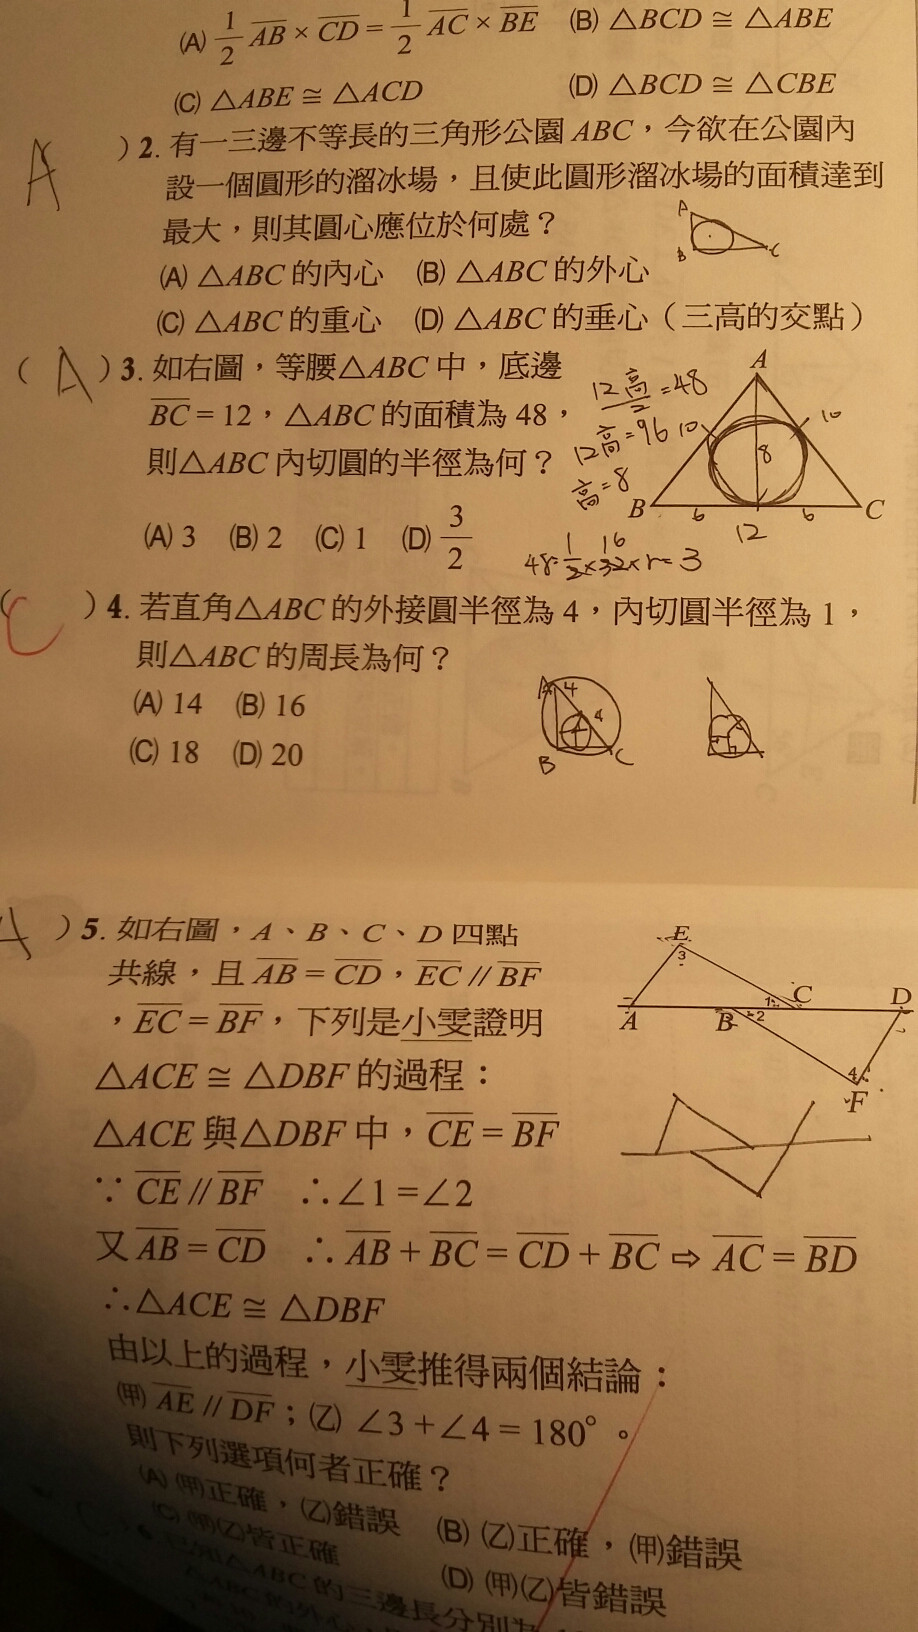 (A) 1/2 AB × CD = 1/2 AC × BE (B) △BCD ≅ △ABE
(C) △ABE ≅ △ACD (D) △BCD ≅ △CBE
A )2. 有一三邊不等長的三角形公園 ABC，今欲在公園內
設一個圓形的溜冰場，且使此圓形溜冰場的面積達到
最大，則其圓心應位於何處？
A
B C
(A) △ABC 的內心 (B) △ABC 的外心
(C) △ABC 的重心 (D) △ABC 的垂心（三高的交點）
( A )3. 如右圖，等腰△ABC 中，底邊
BC = 12，△ABC 的面積為 48，
則△ABC 內切圓的半徑為何？
(A) 3 (B) 2 (C) 1 (D) 3/2
12高/2 = 48
12高 = 96
高 = 8
A
10 10
8
B 6 6 C
12
( C )4. 若直角△ABC 的外接圓半徑為 4，內切圓半徑為 1，
則△ABC 的周長為何？
(A) 14 (B) 16
(C) 18 (D) 20
A 4
4
B C
A )5. 如右圖，A、B、C、D 四點
共線，且 AB = CD，EC // BF
，EC = BF，下列是小雯證明
△ACE ≅ △DBF 的過程：
E
3
1 C D
A B 2
4
F
△ACE 與△DBF 中，CE = BF
∵ CE // BF ∴∠1 =∠2
又 AB = CD ∴ AB + BC = CD + BC ⇨ AC = BD
∴△ACE ≅ △DBF
由以上的過程，小雯推得兩個結論：
(甲) AE // DF；(乙) ∠3 +∠4 = 180°。
則下列選項何者正確？
(A) (甲)正確，(乙)錯誤 (B) (乙)正確，(甲)錯誤
(C) (甲)(乙)皆正確 (D) (甲)(乙)皆錯誤
△ABC 的三邊長分別為